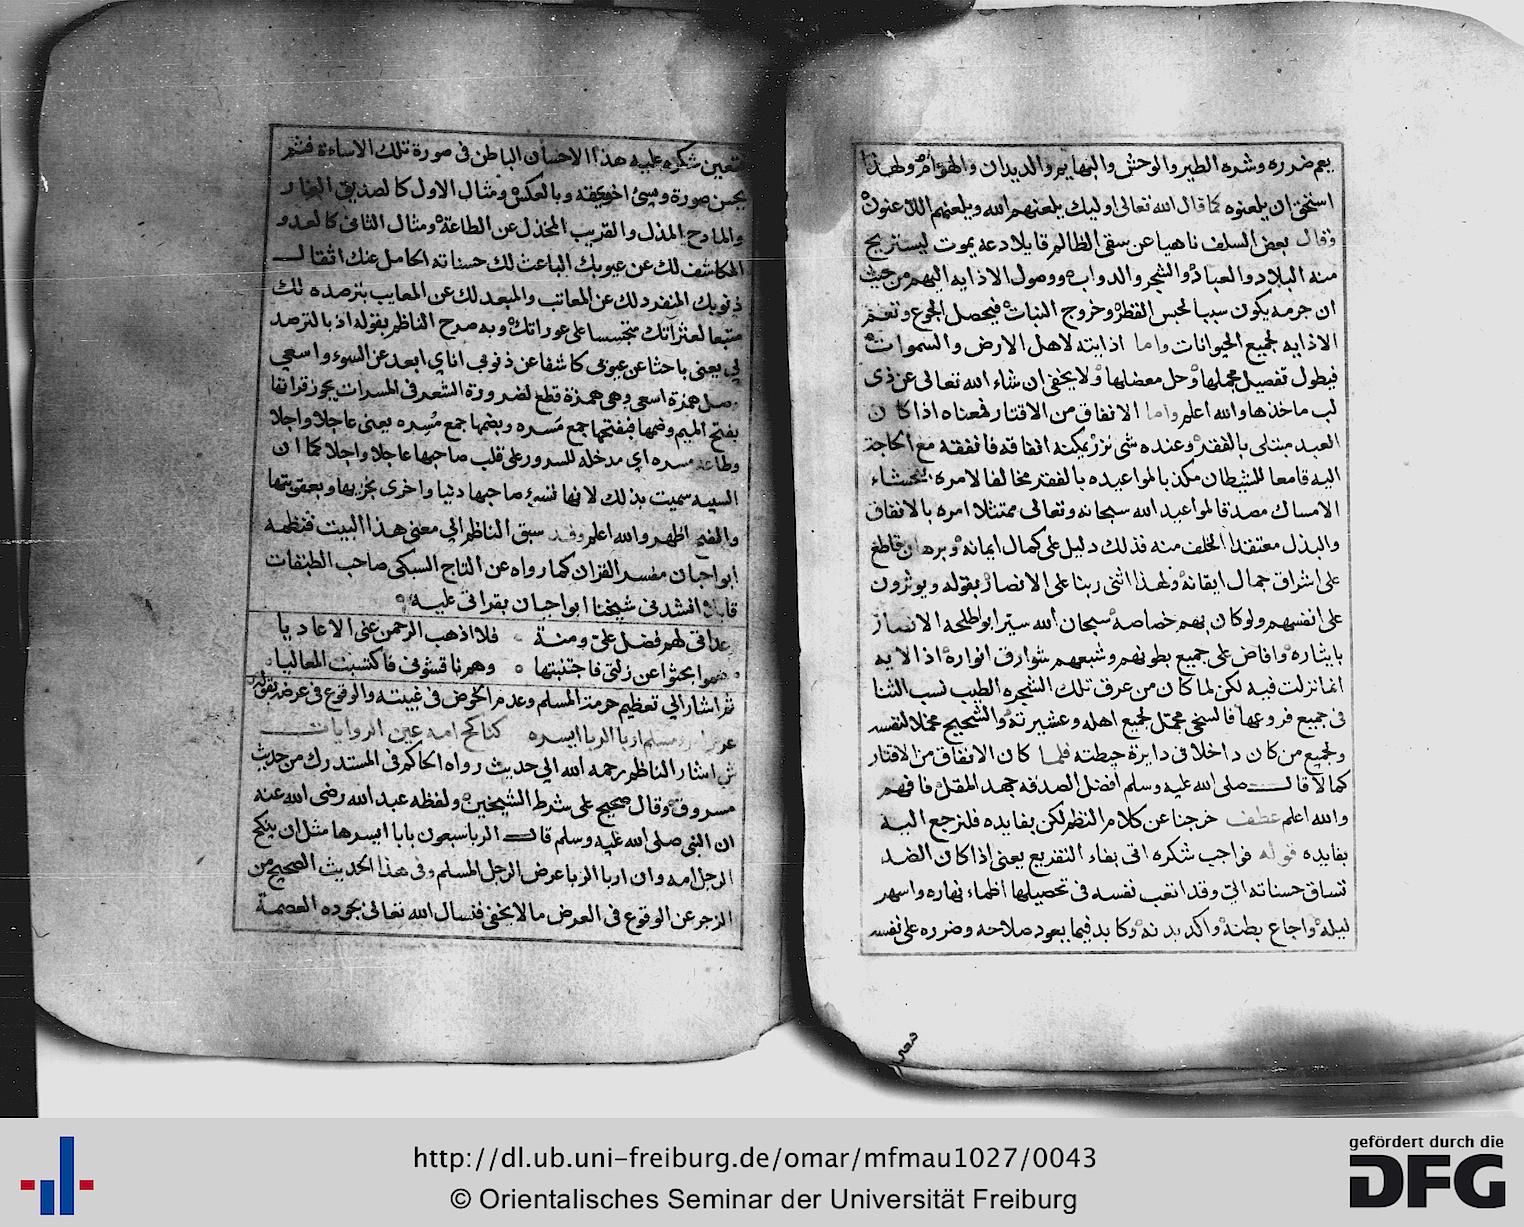 يعم ضرره وشره الطير والوحش والبهايم والديدان والهوام ولهذا
استحق ان يلعنوه كما قال الله تعالى اوليك يلعنهم الله ويلعنهم اللاعنون
وقال بعض السلف ناهيا عن سقى الظالم قايلا دعه يموت ليستريح
منه البلاد والعباد والشجر والدواب ووصول الاذايه اليهم من حيث
ان جرمه يكون سببا لحبس القطر وخروج النبات فيحصل الجوع وتعم
الاذايه لجميع الحيوانات واما اذايته لاهل الارض والسموات
فيطول تفصيل مجملها وحل معضلها ولا يخفى ان شاء الله تعالى عن ذى
لب ماخذها والله اعلم واما الانفاق من الاقتار فمعناه اذا كان
العبد مبتلى بالفقر وعنده شى نزر يمكنه انفاقه فانفقه مع الحاجة
اليه قامعا للشيطان مكذبا لمواعيده بالفقر مخالفا لامره بفحشاء
الامساك مصدقا لمواعيد الله سبحانه وتعالى ممتثلا امره بالانفاق
والبذل معتقدا الخلف منه فذلك دليل على كمال ايمانه وبرهان قاطع
على اشراق جمال ايقانه ولهذا اثنى ربنا على الانصار بقوله ويوثرون
على انفسهم ولو كان بهم خصاصة سبحان الله ستر ابو طلحه الانصار
بايثاره وافاض على جميع بطونهم وشعبهم شوارق انواره اذ الايه
انما نزلت فيه لكن لما كان من عرق تلك الشجره الطيب نسب الثنا
فى جميع فروعها فالسخى مجمل لجميع اهله وعشيرته والشحيح مخملا لنفسه
ولجميع من كان داخلا فى دايرة حيطته فلما كان الانفاق من الاقتار
كمالا قال صلى الله عليه وسلم افضل الصدقه جهد المقل فافهم
والله اعلم عطف خرجنا عن كلام النظم لكن بفايده فلنرجع اليه
بفايده قوله فواجب شكره اتى بفاء التفريع يعنى اذا كان الضد
تساق حسناته الي وقد اتعب نفسه فى تحصيلها اظماء نهاره واسهر
ليله واجاع بطنه واكد بدنه وكابد فيما يعود صلاحه وضرره على نفسه
فتعين
تعين شكره عليه هذا الاحسان الباطن فى صورة تلك الاساءة فثم
يحسن صورة ويسئ حقيقه وبالعكس ومثال الاول كالصديق الضار
والمادح المذل والقريب المخذل عن الطاعة ومثال الثانى كالعدو
المكاشف لك عن عيوبك الباعث لك حسناته الحامل عنك اثقال
ذنوبك المنفرد لك عن المعاتب والمبعد لك عن المعايب بترصده لك
متبعا لعثراتك متجسسا على عوراتك وبه صرح الناظم بقوله اذ بالترصد
لي يعنى باحثا عن عيوبى كاشفا عن ذنوبى اناي ابعد عن السوء واسعي
وصل همزة اسعى وهى همزة قطع لضرورة الشعر فى المسرات يجوز قراتها
بفتح الميم وضمها فبفتحها جمع مَسره وبضمها جمع مُسِره يعنى عاجلا واجلا
وطاعة مسره اي مدخله للسرور على قلب صاحبها عاجلا واجلا كما ان
السيه سميت بذلك لانها تسىء صاحبها دنيا واخرى بخزيها وبعقوبتها
والفتح اظهر والله اعلم وقد سبق الناظم الي معنى هذا البيت فنظمه
ابو احيان مفسر القران كما رواه عن التاج السبكى صاحب الطبقات
قايلا انشدنى شيخنا ابو احيان بقراتى عليه
عداتى لهم فضل علىّ ومنة فلا اذهب الرحمن عنى الاعاديا
هموا بحثوا عن زلتى فاجتنبتها وهم نافسونى فاكتسبت المعاليا
ثم اشار الي تعظيم حرمة المسلم وعدم الخوض فى غيبته والوقوع فى عرضه بقوله
عرض مسلم اربا الربا ايسره كناكح امه عين الروايات
ش اشار الناظم رحمه الله الي حديث رواه الحاكم فى المستدرك من حديث
مسروق وقال صحيح على شرط الشيخين ولفظه عبد الله رضى الله عنه
ان النبى صلى الله عليه وسلم قال الربا سبعون بابا ايسرها مثل ان ينكح
الرجل امه وان اربا الربا عرض الرجل المسلم وفى هذا الحديث الصحيح من
الزجر عن الوقوع فى العرض ما لا يخفى فنسال الله تعالى بجوده العصمة
http://dl.ub.uni-freiburg.de/omar/mfmau1027/0043
© Orientalisches Seminar der Universität Freiburg
gefördert durch die
DFG